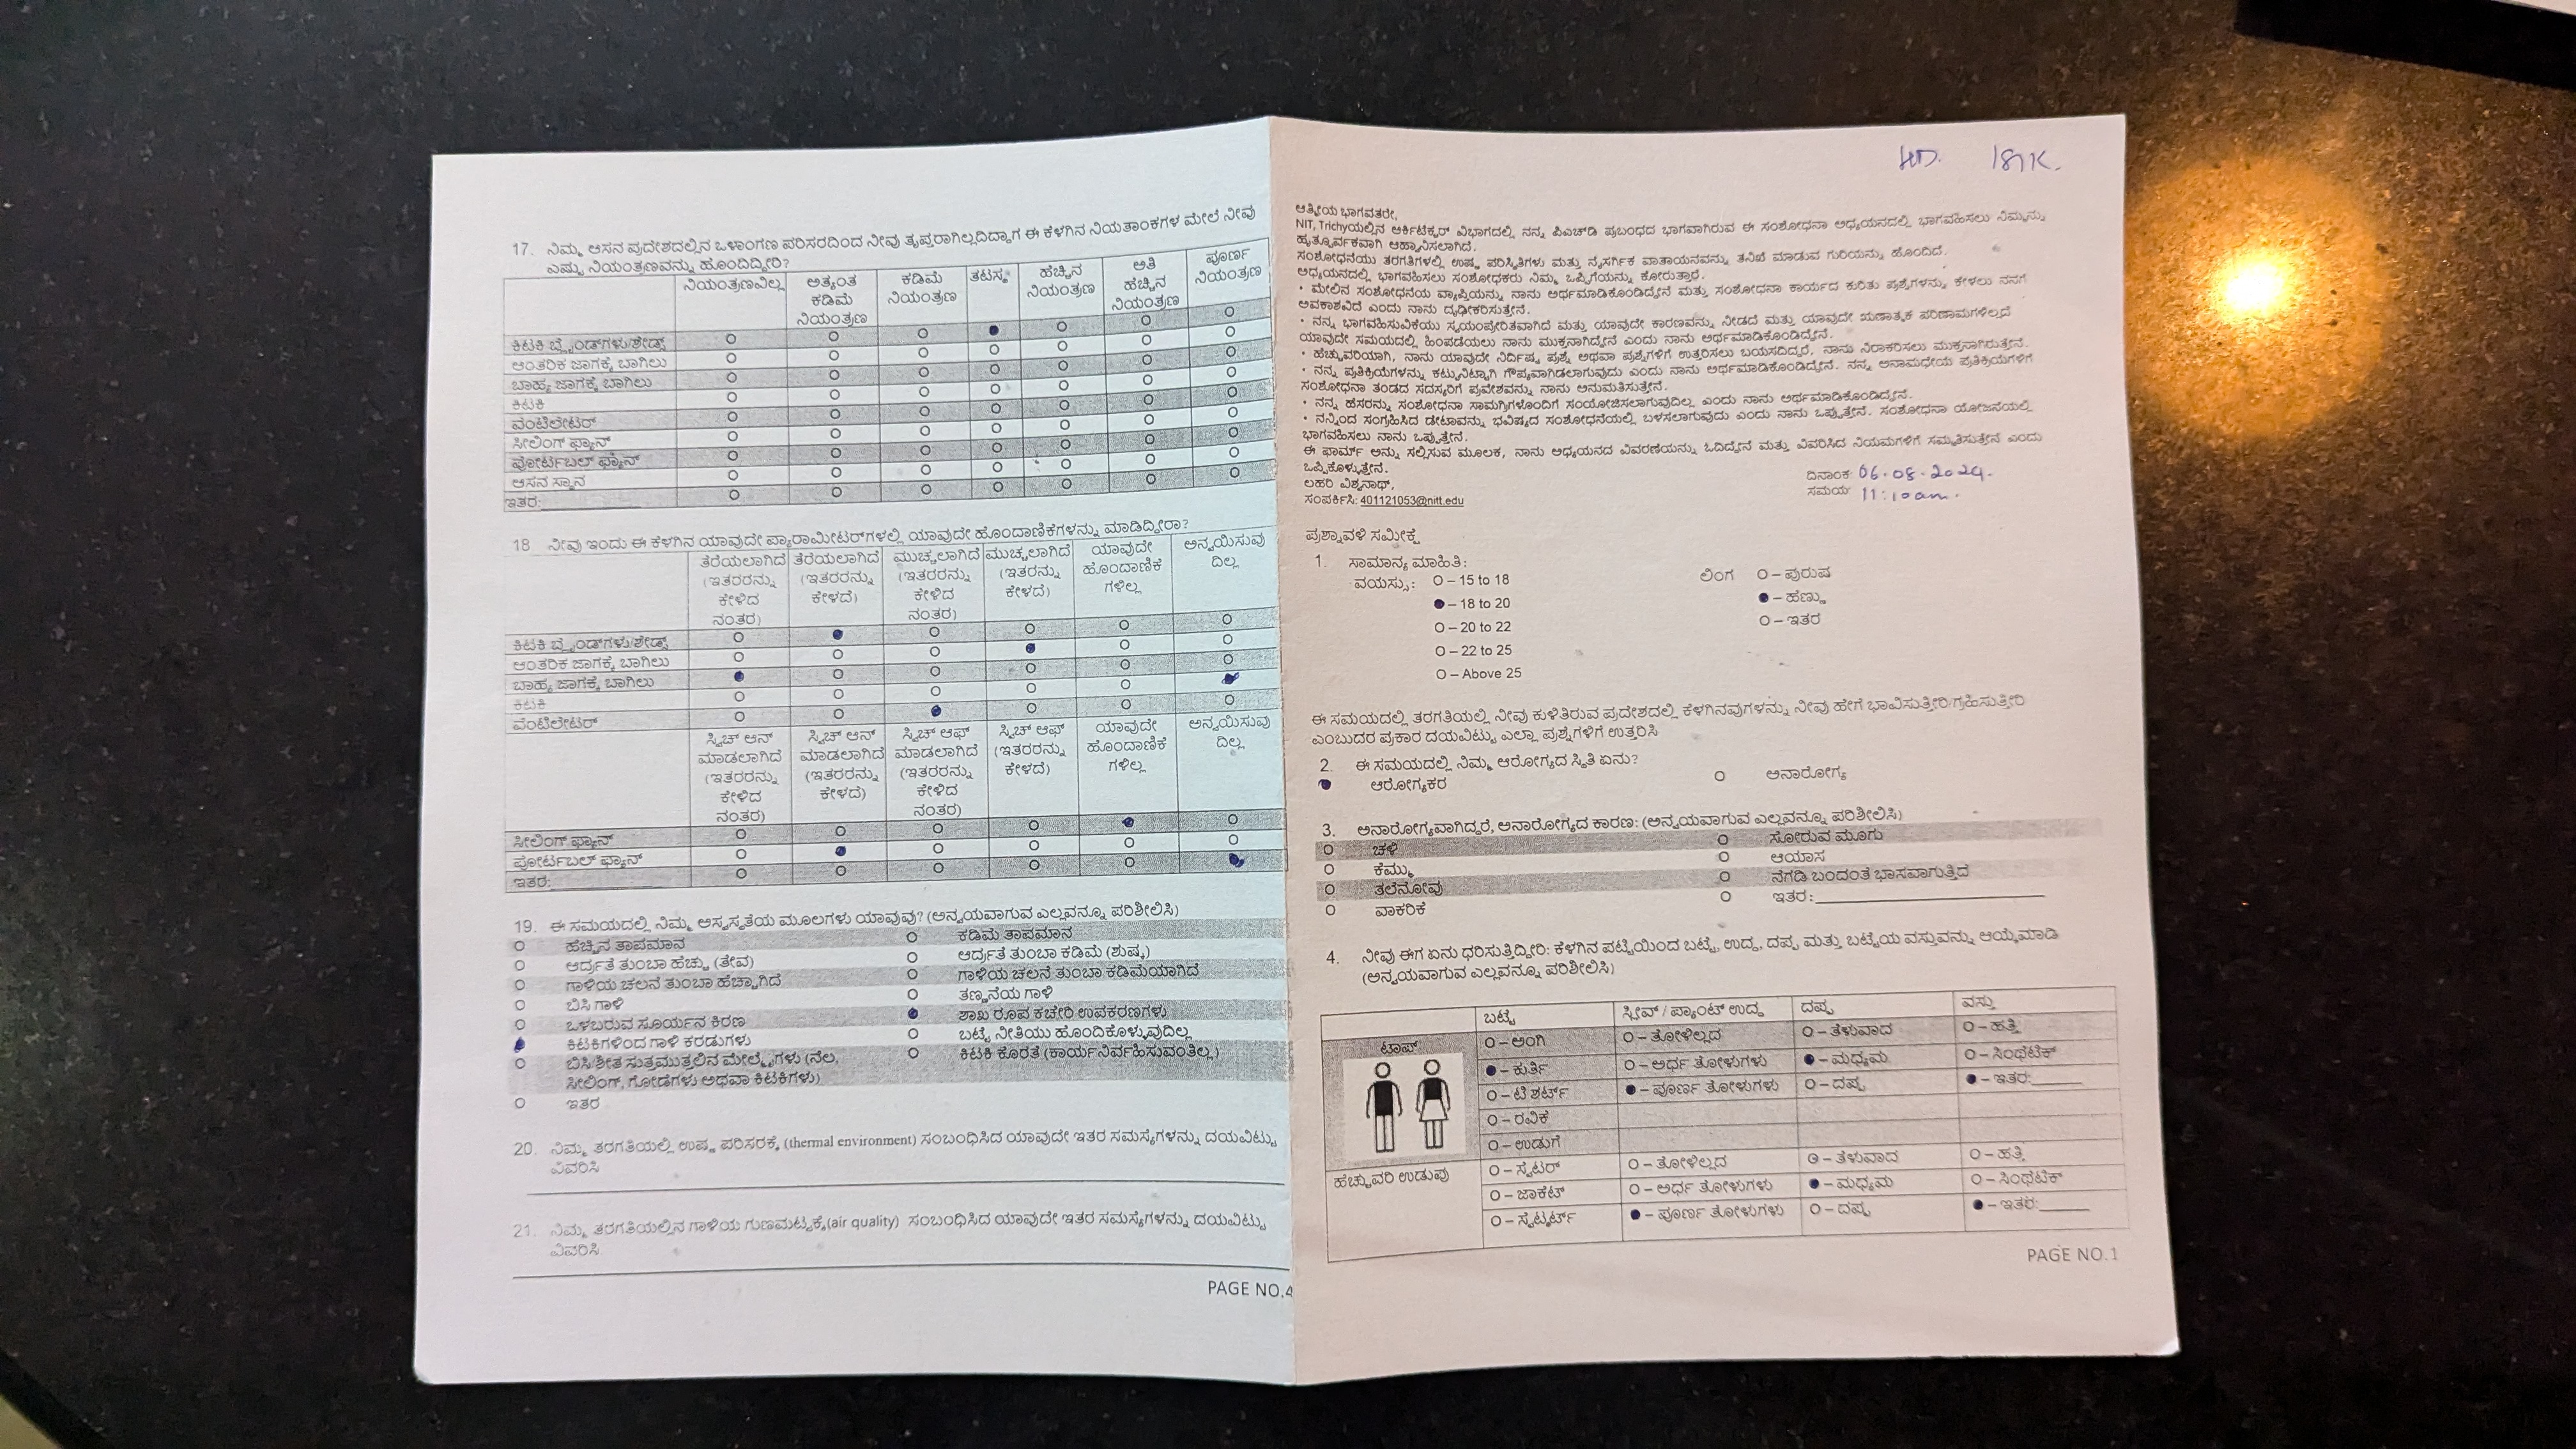 17. ನಿಮ್ಮ ಆಸನ ಪ್ರದೇಶದಲ್ಲಿನ ಒಳಾಂಗಣ ಪರಿಸರದಿಂದ ನೀವು ತೃಪ್ತರಾಗಿಲ್ಲದಿದ್ದಾಗ ಈ ಕೆಳಗಿನ ನಿಯತಾಂಕಗಳ ಮೇಲೆ ನೀವು
ಎಷ್ಟು ನಿಯಂತ್ರಣವನ್ನು ಹೊಂದಿದ್ದೀರಿ?
ನಿಯಂತ್ರಣವಿಲ್ಲ ಅತ್ಯಂತ ಕಡಿಮೆ ನಿಯಂತ್ರಣ ಕಡಿಮೆ ನಿಯಂತ್ರಣ ತಟಸ್ಥ ಹೆಚ್ಚಿನ ನಿಯಂತ್ರಣ ಅತಿ ಹೆಚ್ಚಿನ ನಿಯಂತ್ರಣ ಪೂರ್ಣ ನಿಯಂತ್ರಣ
ಕಿಟಕಿ ಬ್ಲೈಂಡ್‌ಗಳು/ಶೇಡ್ಸ್
ಆಂತರಿಕ ಜಾಗಕ್ಕೆ ಬಾಗಿಲು
ಬಾಹ್ಯ ಜಾಗಕ್ಕೆ ಬಾಗಿಲು
ಕಿಟಕಿ
ವೆಂಟಿಲೇಟರ್
ಸೀಲಿಂಗ್ ಫ್ಯಾನ್
ಪೋರ್ಟಬಲ್ ಫ್ಯಾನ್
ಆಸನ ಸ್ಥಾನ
ಇತರ:
18 ನೀವು ಇಂದು ಈ ಕೆಳಗಿನ ಯಾವುದೇ ಪ್ಯಾರಾಮೀಟರ್‌ಗಳಲ್ಲಿ ಯಾವುದೇ ಹೊಂದಾಣಿಕೆಗಳನ್ನು ಮಾಡಿದ್ದೀರಾ?
ತೆರೆಯಲಾಗಿದೆ (ಇತರರನ್ನು ಕೇಳಿದ ನಂತರ) ತೆರೆಯಲಾಗಿದೆ (ಇತರರನ್ನು ಕೇಳದೆ) ಮುಚ್ಚಲಾಗಿದೆ (ಇತರರನ್ನು ಕೇಳಿದ ನಂತರ) ಮುಚ್ಚಲಾಗಿದೆ (ಇತರರನ್ನು ಕೇಳದೆ) ಯಾವುದೇ ಹೊಂದಾಣಿಕೆ ಗಳಿಲ್ಲ ಅನ್ವಯಿಸುವು ದಿಲ್ಲ
ಕಿಟಕಿ ಬ್ಲೈಂಡ್‌ಗಳು/ಶೇಡ್ಸ್
ಆಂತರಿಕ ಜಾಗಕ್ಕೆ ಬಾಗಿಲು
ಬಾಹ್ಯ ಜಾಗಕ್ಕೆ ಬಾಗಿಲು
ಕಿಟಕಿ
ವೆಂಟಿಲೇಟರ್
ಸ್ವಿಚ್ ಆನ್ ಮಾಡಲಾಗಿದೆ (ಇತರರನ್ನು ಕೇಳಿದ ನಂತರ) ಸ್ವಿಚ್ ಆನ್ ಮಾಡಲಾಗಿದೆ (ಇತರರನ್ನು ಕೇಳದೆ) ಸ್ವಿಚ್ ಆಫ್ ಮಾಡಲಾಗಿದೆ (ಇತರರನ್ನು ಕೇಳಿದ ನಂತರ) ಸ್ವಿಚ್ ಆಫ್ (ಇತರರನ್ನು ಕೇಳದೆ) ಯಾವುದೇ ಹೊಂದಾಣಿಕೆ ಗಳಿಲ್ಲ ಅನ್ವಯಿಸುವು ದಿಲ್ಲ
ಸೀಲಿಂಗ್ ಫ್ಯಾನ್
ಪೋರ್ಟಬಲ್ ಫ್ಯಾನ್
ಇತರ:
19. ಈ ಸಮಯದಲ್ಲಿ ನಿಮ್ಮ ಅಸ್ವಸ್ಥತೆಯ ಮೂಲಗಳು ಯಾವುವು? (ಅನ್ವಯವಾಗುವ ಎಲ್ಲವನ್ನೂ ಪರಿಶೀಲಿಸಿ)
ಹೆಚ್ಚಿನ ತಾಪಮಾನ ಕಡಿಮೆ ತಾಪಮಾನ
ಆರ್ದ್ರತೆ ತುಂಬಾ ಹೆಚ್ಚು (ತೇವ) ಆರ್ದ್ರತೆ ತುಂಬಾ ಕಡಿಮೆ (ಶುಷ್ಕ)
ಗಾಳಿಯ ಚಲನೆ ತುಂಬಾ ಹೆಚ್ಚಾಗಿದೆ ಗಾಳಿಯ ಚಲನೆ ತುಂಬಾ ಕಡಿಮೆಯಾಗಿದೆ
ಬಿಸಿ ಗಾಳಿ ತಣ್ಣನೆಯ ಗಾಳಿ
ಒಳಬರುವ ಸೂರ್ಯನ ಕಿರಣ ಶಾಖ ರೂಪ ಕಚೇರಿ ಉಪಕರಣಗಳು
ಕಿಟಕಿಗಳಿಂದ ಗಾಳಿ ಕರಡುಗಳು ಬಟ್ಟೆ ನೀತಿಯು ಹೊಂದಿಕೊಳ್ಳುವುದಿಲ್ಲ
ಬಿಸಿ/ಶೀತ ಸುತ್ತಮುತ್ತಲಿನ ಮೇಲ್ಮೈಗಳು (ನೆಲ, ಕಿಟಕಿ ಕೊರತೆ (ಕಾರ್ಯನಿರ್ವಹಿಸುವಂತಿಲ್ಲ)
ಸೀಲಿಂಗ್, ಗೋಡೆಗಳು ಅಥವಾ ಕಿಟಕಿಗಳು)
ಇತರ
20. ನಿಮ್ಮ ತರಗತಿಯಲ್ಲಿ ಉಷ್ಣ ಪರಿಸರಕ್ಕೆ (thermal environment) ಸಂಬಂಧಿಸಿದ ಯಾವುದೇ ಇತರ ಸಮಸ್ಯೆಗಳನ್ನು ದಯವಿಟ್ಟು
ವಿವರಿಸಿ
21. ನಿಮ್ಮ ತರಗತಿಯಲ್ಲಿನ ಗಾಳಿಯ ಗುಣಮಟ್ಟಕ್ಕೆ(air quality) ಸಂಬಂಧಿಸಿದ ಯಾವುದೇ ಇತರ ಸಮಸ್ಯೆಗಳನ್ನು ದಯವಿಟ್ಟು
ವಿವರಿಸಿ
PAGE NO.4
ಆತ್ಮೀಯ ಭಾಗವತರೇ,
NIT, Trichyಯಲ್ಲಿನ ಆರ್ಕಿಟೆಕ್ಚರ್ ವಿಭಾಗದಲ್ಲಿ ನನ್ನ ಪಿಎಚ್‌ಡಿ ಪ್ರಬಂಧದ ಭಾಗವಾಗಿರುವ ಈ ಸಂಶೋಧನಾ ಅಧ್ಯಯನದಲ್ಲಿ ಭಾಗವಹಿಸಲು ನಿಮ್ಮನ್ನು
ಹೃತ್ಪೂರ್ವಕವಾಗಿ ಆಹ್ವಾನಿಸಲಾಗಿದೆ.
ಸಂಶೋಧನೆಯು ತರಗತಿಗಳಲ್ಲಿ ಉಷ್ಣ ಪರಿಸ್ಥಿತಿಗಳು ಮತ್ತು ನೈಸರ್ಗಿಕ ವಾತಾಯನವನ್ನು ತನಿಖೆ ಮಾಡುವ ಗುರಿಯನ್ನು ಹೊಂದಿದೆ.
ಅಧ್ಯಯನದಲ್ಲಿ ಭಾಗವಹಿಸಲು ಸಂಶೋಧಕರು ನಿಮ್ಮ ಒಪ್ಪಿಗೆಯನ್ನು ಕೋರುತ್ತಾರೆ.
• ಮೇಲಿನ ಸಂಶೋಧನೆಯ ವ್ಯಾಪ್ತಿಯನ್ನು ನಾನು ಅರ್ಥಮಾಡಿಕೊಂಡಿದ್ದೇನೆ ಮತ್ತು ಸಂಶೋಧನಾ ಕಾರ್ಯದ ಕುರಿತು ಪ್ರಶ್ನೆಗಳನ್ನು ಕೇಳಲು ನನಗೆ
ಅವಕಾಶವಿದೆ ಎಂದು ನಾನು ದೃಢೀಕರಿಸುತ್ತೇನೆ.
• ನನ್ನ ಭಾಗವಹಿಸುವಿಕೆಯು ಸ್ವಯಂಪ್ರೇರಿತವಾಗಿದೆ ಮತ್ತು ಯಾವುದೇ ಕಾರಣವನ್ನು ನೀಡದೆ ಮತ್ತು ಯಾವುದೇ ಋಣಾತ್ಮಕ ಪರಿಣಾಮಗಳಿಲ್ಲದೆ
ಯಾವುದೇ ಸಮಯದಲ್ಲಿ ಹಿಂಪಡೆಯಲು ನಾನು ಮುಕ್ತನಾಗಿದ್ದೇನೆ ಎಂದು ನಾನು ಅರ್ಥಮಾಡಿಕೊಂಡಿದ್ದೇನೆ.
• ಹೆಚ್ಚುವರಿಯಾಗಿ, ನಾನು ಯಾವುದೇ ನಿರ್ದಿಷ್ಟ ಪ್ರಶ್ನೆ ಅಥವಾ ಪ್ರಶ್ನೆಗಳಿಗೆ ಉತ್ತರಿಸಲು ಬಯಸದಿದ್ದರೆ, ನಾನು ನಿರಾಕರಿಸಲು ಮುಕ್ತನಾಗಿರುತ್ತೇನೆ.
• ನನ್ನ ಪ್ರತಿಕ್ರಿಯೆಗಳನ್ನು ಕಟ್ಟುನಿಟ್ಟಾಗಿ ಗೌಪ್ಯವಾಗಿಡಲಾಗುವುದು ಎಂದು ನಾನು ಅರ್ಥಮಾಡಿಕೊಂಡಿದ್ದೇನೆ. ನನ್ನ ಅನಾಮಧೇಯ ಪ್ರತಿಕ್ರಿಯೆಗಳಿಗೆ
ಸಂಶೋಧನಾ ತಂಡದ ಸದಸ್ಯರಿಗೆ ಪ್ರವೇಶವನ್ನು ನಾನು ಅನುಮತಿಸುತ್ತೇನೆ.
• ನನ್ನ ಹೆಸರನ್ನು ಸಂಶೋಧನಾ ಸಾಮಗ್ರಿಗಳೊಂದಿಗೆ ಸಂಯೋಜಿಸಲಾಗುವುದಿಲ್ಲ ಎಂದು ನಾನು ಅರ್ಥಮಾಡಿಕೊಂಡಿದ್ದೇನೆ.
• ನನ್ನಿಂದ ಸಂಗ್ರಹಿಸಿದ ಡೇಟಾವನ್ನು ಭವಿಷ್ಯದ ಸಂಶೋಧನೆಯಲ್ಲಿ ಬಳಸಲಾಗುವುದು ಎಂದು ನಾನು ಒಪ್ಪುತ್ತೇನೆ. ಸಂಶೋಧನಾ ಯೋಜನೆಯಲ್ಲಿ
ಭಾಗವಹಿಸಲು ನಾನು ಒಪ್ಪುತ್ತೇನೆ.
ಈ ಫಾರ್ಮ್ ಅನ್ನು ಸಲ್ಲಿಸುವ ಮೂಲಕ, ನಾನು ಅಧ್ಯಯನದ ವಿವರಣೆಯನ್ನು ಓದಿದ್ದೇನೆ ಮತ್ತು ವಿವರಿಸಿದ ನಿಯಮಗಳಿಗೆ ಸಮ್ಮತಿಸುತ್ತೇನೆ ಎಂದು
ಒಪ್ಪಿಕೊಳ್ಳುತ್ತೇನೆ.
ಲಹರಿ ವಿಶ್ವನಾಥ್,
ಸಂಪರ್ಕಿಸಿ: 401121053@nitt.edu
ದಿನಾಂಕ: 06.08.2024.
ಸಮಯ: 11:10am.
ಪ್ರಶ್ನಾವಳಿ ಸಮೀಕ್ಷೆ
1. ಸಾಮಾನ್ಯ ಮಾಹಿತಿ:
ವಯಸ್ಸು: – 15 to 18 ಲಿಂಗ – ಪುರುಷ
– 18 to 20 – ಹೆಣ್ಣು
– 20 to 22 – ಇತರ
– 22 to 25
– Above 25
ಈ ಸಮಯದಲ್ಲಿ ತರಗತಿಯಲ್ಲಿ ನೀವು ಕುಳಿತಿರುವ ಪ್ರದೇಶದಲ್ಲಿ ಕೆಳಗಿನವುಗಳನ್ನು ನೀವು ಹೇಗೆ ಭಾವಿಸುತ್ತೀರಿ/ಗ್ರಹಿಸುತ್ತೀರಿ
ಎಂಬುದರ ಪ್ರಕಾರ ದಯವಿಟ್ಟು ಎಲ್ಲಾ ಪ್ರಶ್ನೆಗಳಿಗೆ ಉತ್ತರಿಸಿ
2. ಈ ಸಮಯದಲ್ಲಿ ನಿಮ್ಮ ಆರೋಗ್ಯದ ಸ್ಥಿತಿ ಏನು?
ಆರೋಗ್ಯಕರ ಅನಾರೋಗ್ಯ
3. ಅನಾರೋಗ್ಯವಾಗಿದ್ದರೆ, ಅನಾರೋಗ್ಯದ ಕಾರಣ: (ಅನ್ವಯವಾಗುವ ಎಲ್ಲವನ್ನೂ ಪರಿಶೀಲಿಸಿ)
ಚಳಿ ಸೋರುವ ಮೂಗು
ಕೆಮ್ಮು ಆಯಾಸ
ತಲೆನೋವು ನೆಗಡಿ ಬಂದಂತೆ ಭಾಸವಾಗುತ್ತಿದೆ
ವಾಕರಿಕೆ ಇತರ:
4. ನೀವು ಈಗ ಏನು ಧರಿಸುತ್ತಿದ್ದೀರಿ: ಕೆಳಗಿನ ಪಟ್ಟಿಯಿಂದ ಬಟ್ಟೆ, ಉದ್ದ, ದಪ್ಪ ಮತ್ತು ಬಟ್ಟೆಯ ವಸ್ತುವನ್ನು ಆಯ್ಕೆಮಾಡಿ
(ಅನ್ವಯವಾಗುವ ಎಲ್ಲವನ್ನೂ ಪರಿಶೀಲಿಸಿ)
ಬಟ್ಟೆ ಸ್ಲೀವ್ / ಪ್ಯಾಂಟ್ ಉದ್ದ ದಪ್ಪ ವಸ್ತು
ಟಾಪ್ – ಅಂಗಿ – ತೋಳಿಲ್ಲದ – ತೆಳುವಾದ – ಹತ್ತಿ
– ಕುರ್ತಿ – ಅರ್ಧ ತೋಳುಗಳು – ಮಧ್ಯಮ – ಸಿಂಥೆಟಿಕ್
– ಟಿ ಶರ್ಟ್ – ಪೂರ್ಣ ತೋಳುಗಳು – ದಪ್ಪ – ಇತರ:
– ರವಿಕೆ
– ಉಡುಗೆ
ಹೆಚ್ಚುವರಿ ಉಡುಪು – ಸ್ವೆಟರ್ – ತೋಳಿಲ್ಲದ – ತೆಳುವಾದ – ಹತ್ತಿ
– ಜಾಕೆಟ್ – ಅರ್ಧ ತೋಳುಗಳು – ಮಧ್ಯಮ – ಸಿಂಥೆಟಿಕ್
– ಸ್ವೆಟ್ಶರ್ಟ್ – ಪೂರ್ಣ ತೋಳುಗಳು – ದಪ್ಪ – ಇತರ:
PAGE NO.1